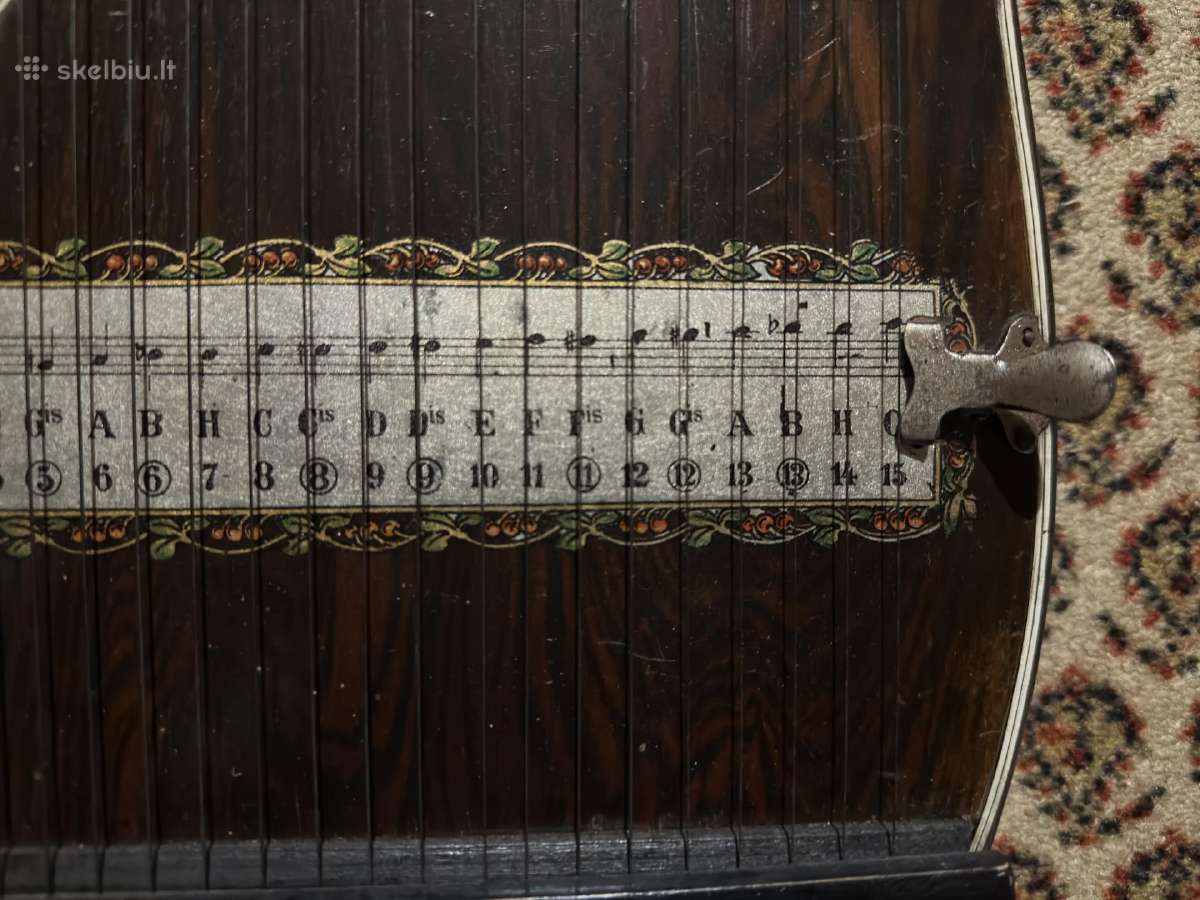 skelbiu.lt
Gis A B H C Cis D Dis E F Fis G Gis A B H C
5 6 6 7 8 8 9 9 10 11 11 12 12 13 13 14 15